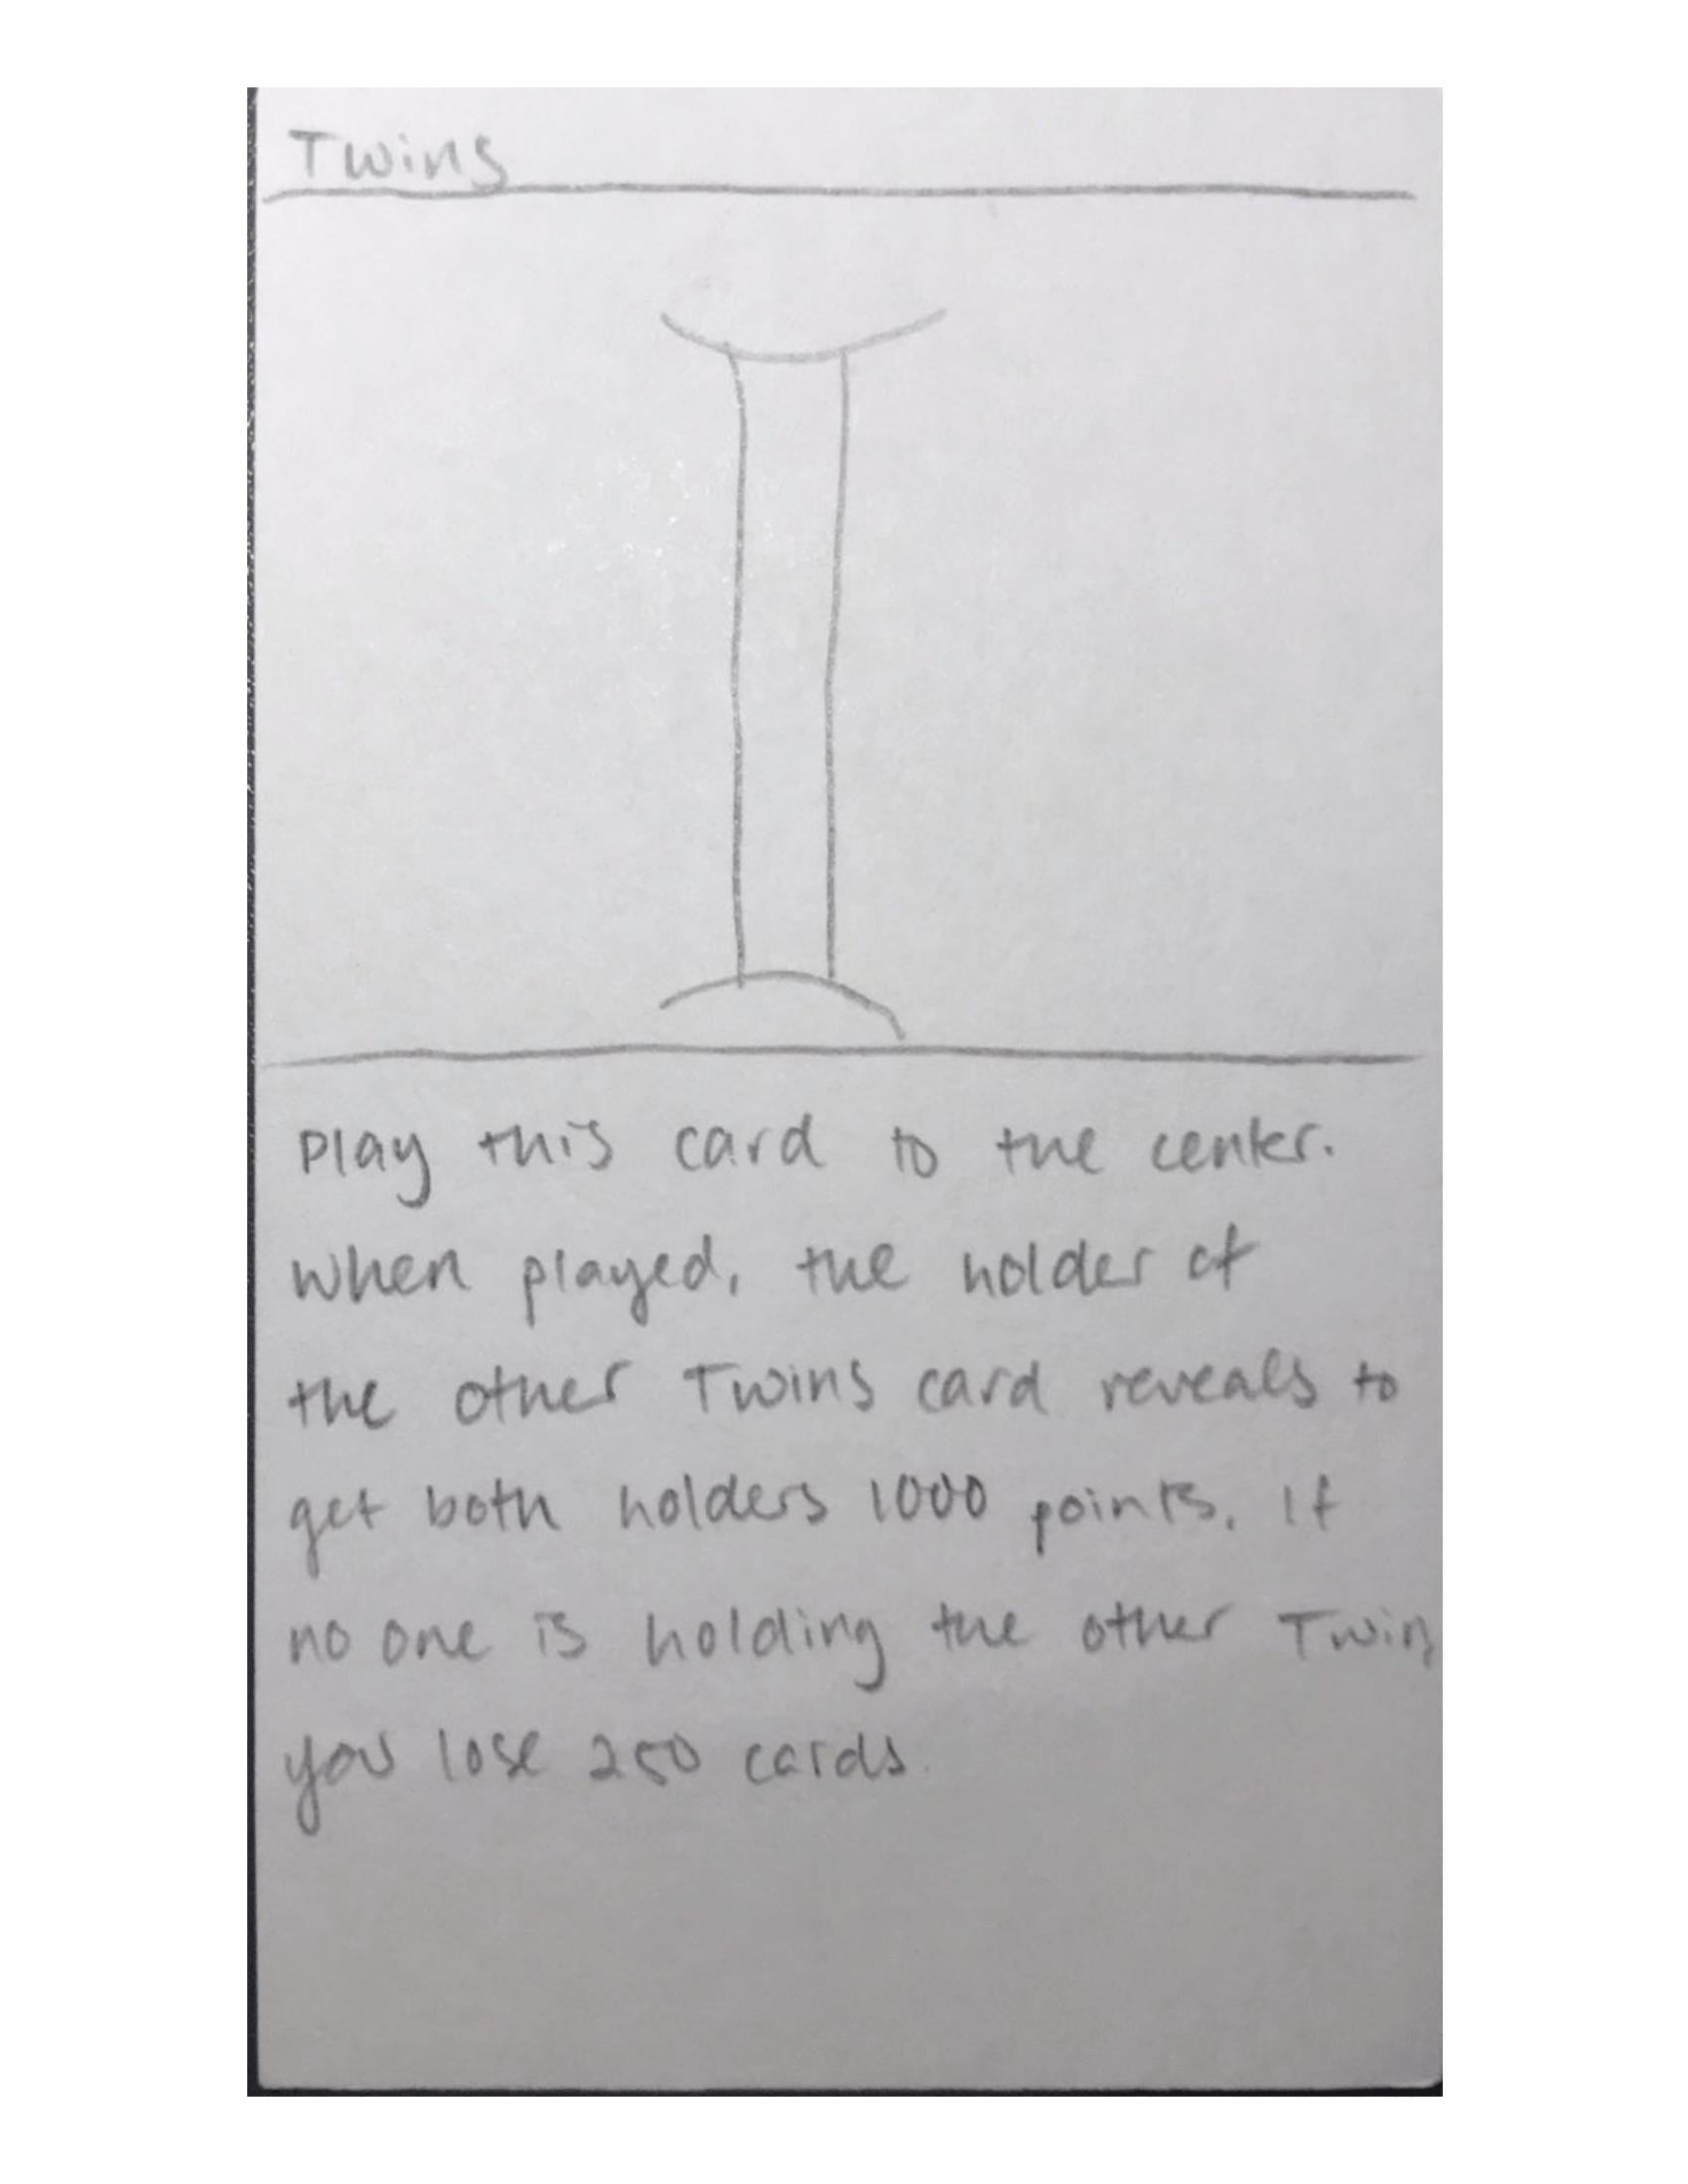 Twins
Play this card to the center.
When played, the holder of
the other Twins card reveals to
get both holders 1000 points. If
no one is holding the other Twin,
you lose 250 cards.